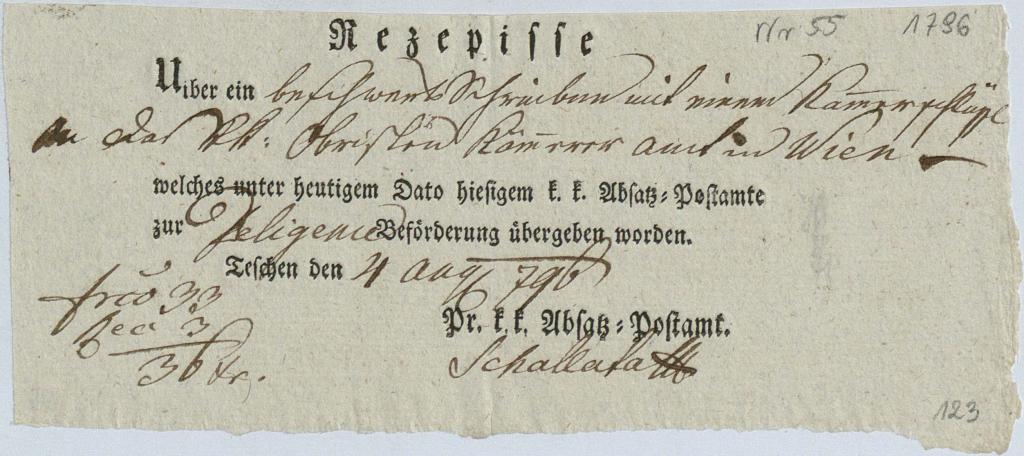 Nr 55 1796
Rezepisse
Uiber ein beschwert Schreiben mit einem Kammerschlüßl
an das kk: Obristen Kämmerer amt in Wien
welches unter heutigem Dato hiesigem k. k. Absatz-Postamte
zur Deligence Beförderung übergeben worden.
Teschen den 4 aug 796
frco 33
Rec 3
36 kr.
Pr. k. k. Absatz-Postamt.
Schallata
123